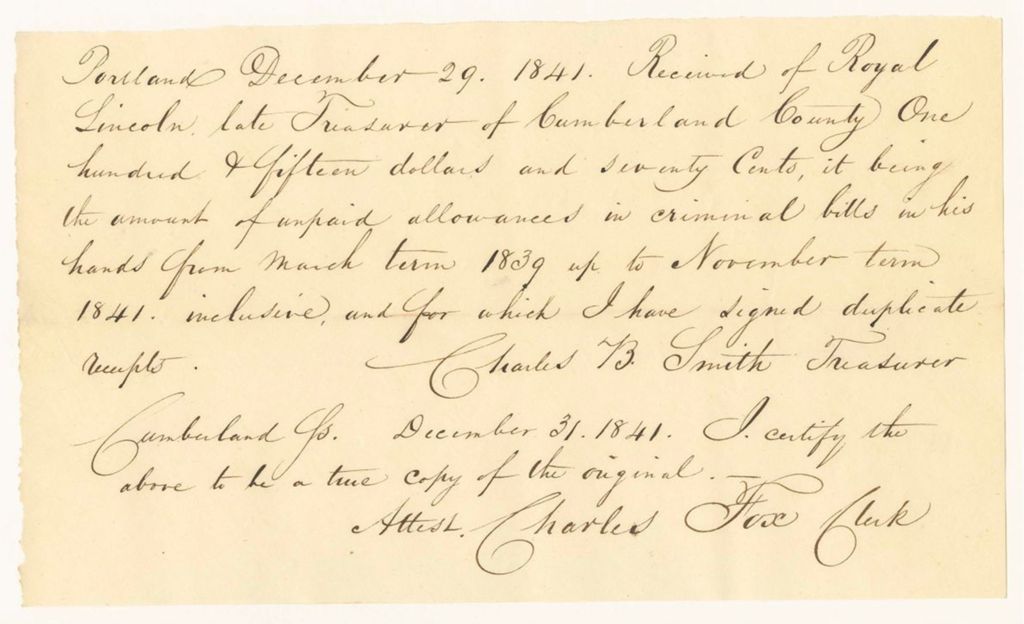 Portland December 29. 1841. Received of Royal
Lincoln, late Treasurer of Cumberland County One
hundred & fifteen dollars and seventy Cents, it being
the amount of unpaid allowances in criminal bills in his
hands from March term 1839 up to November term
1841. inclusive, and for which I have signed duplicate
receipts. Charles B. Smith Treasurer
Cumberland Ss. December 31. 1841. I. certify the
above to be a true copy of the original.
Attest. Charles Fox Clerk